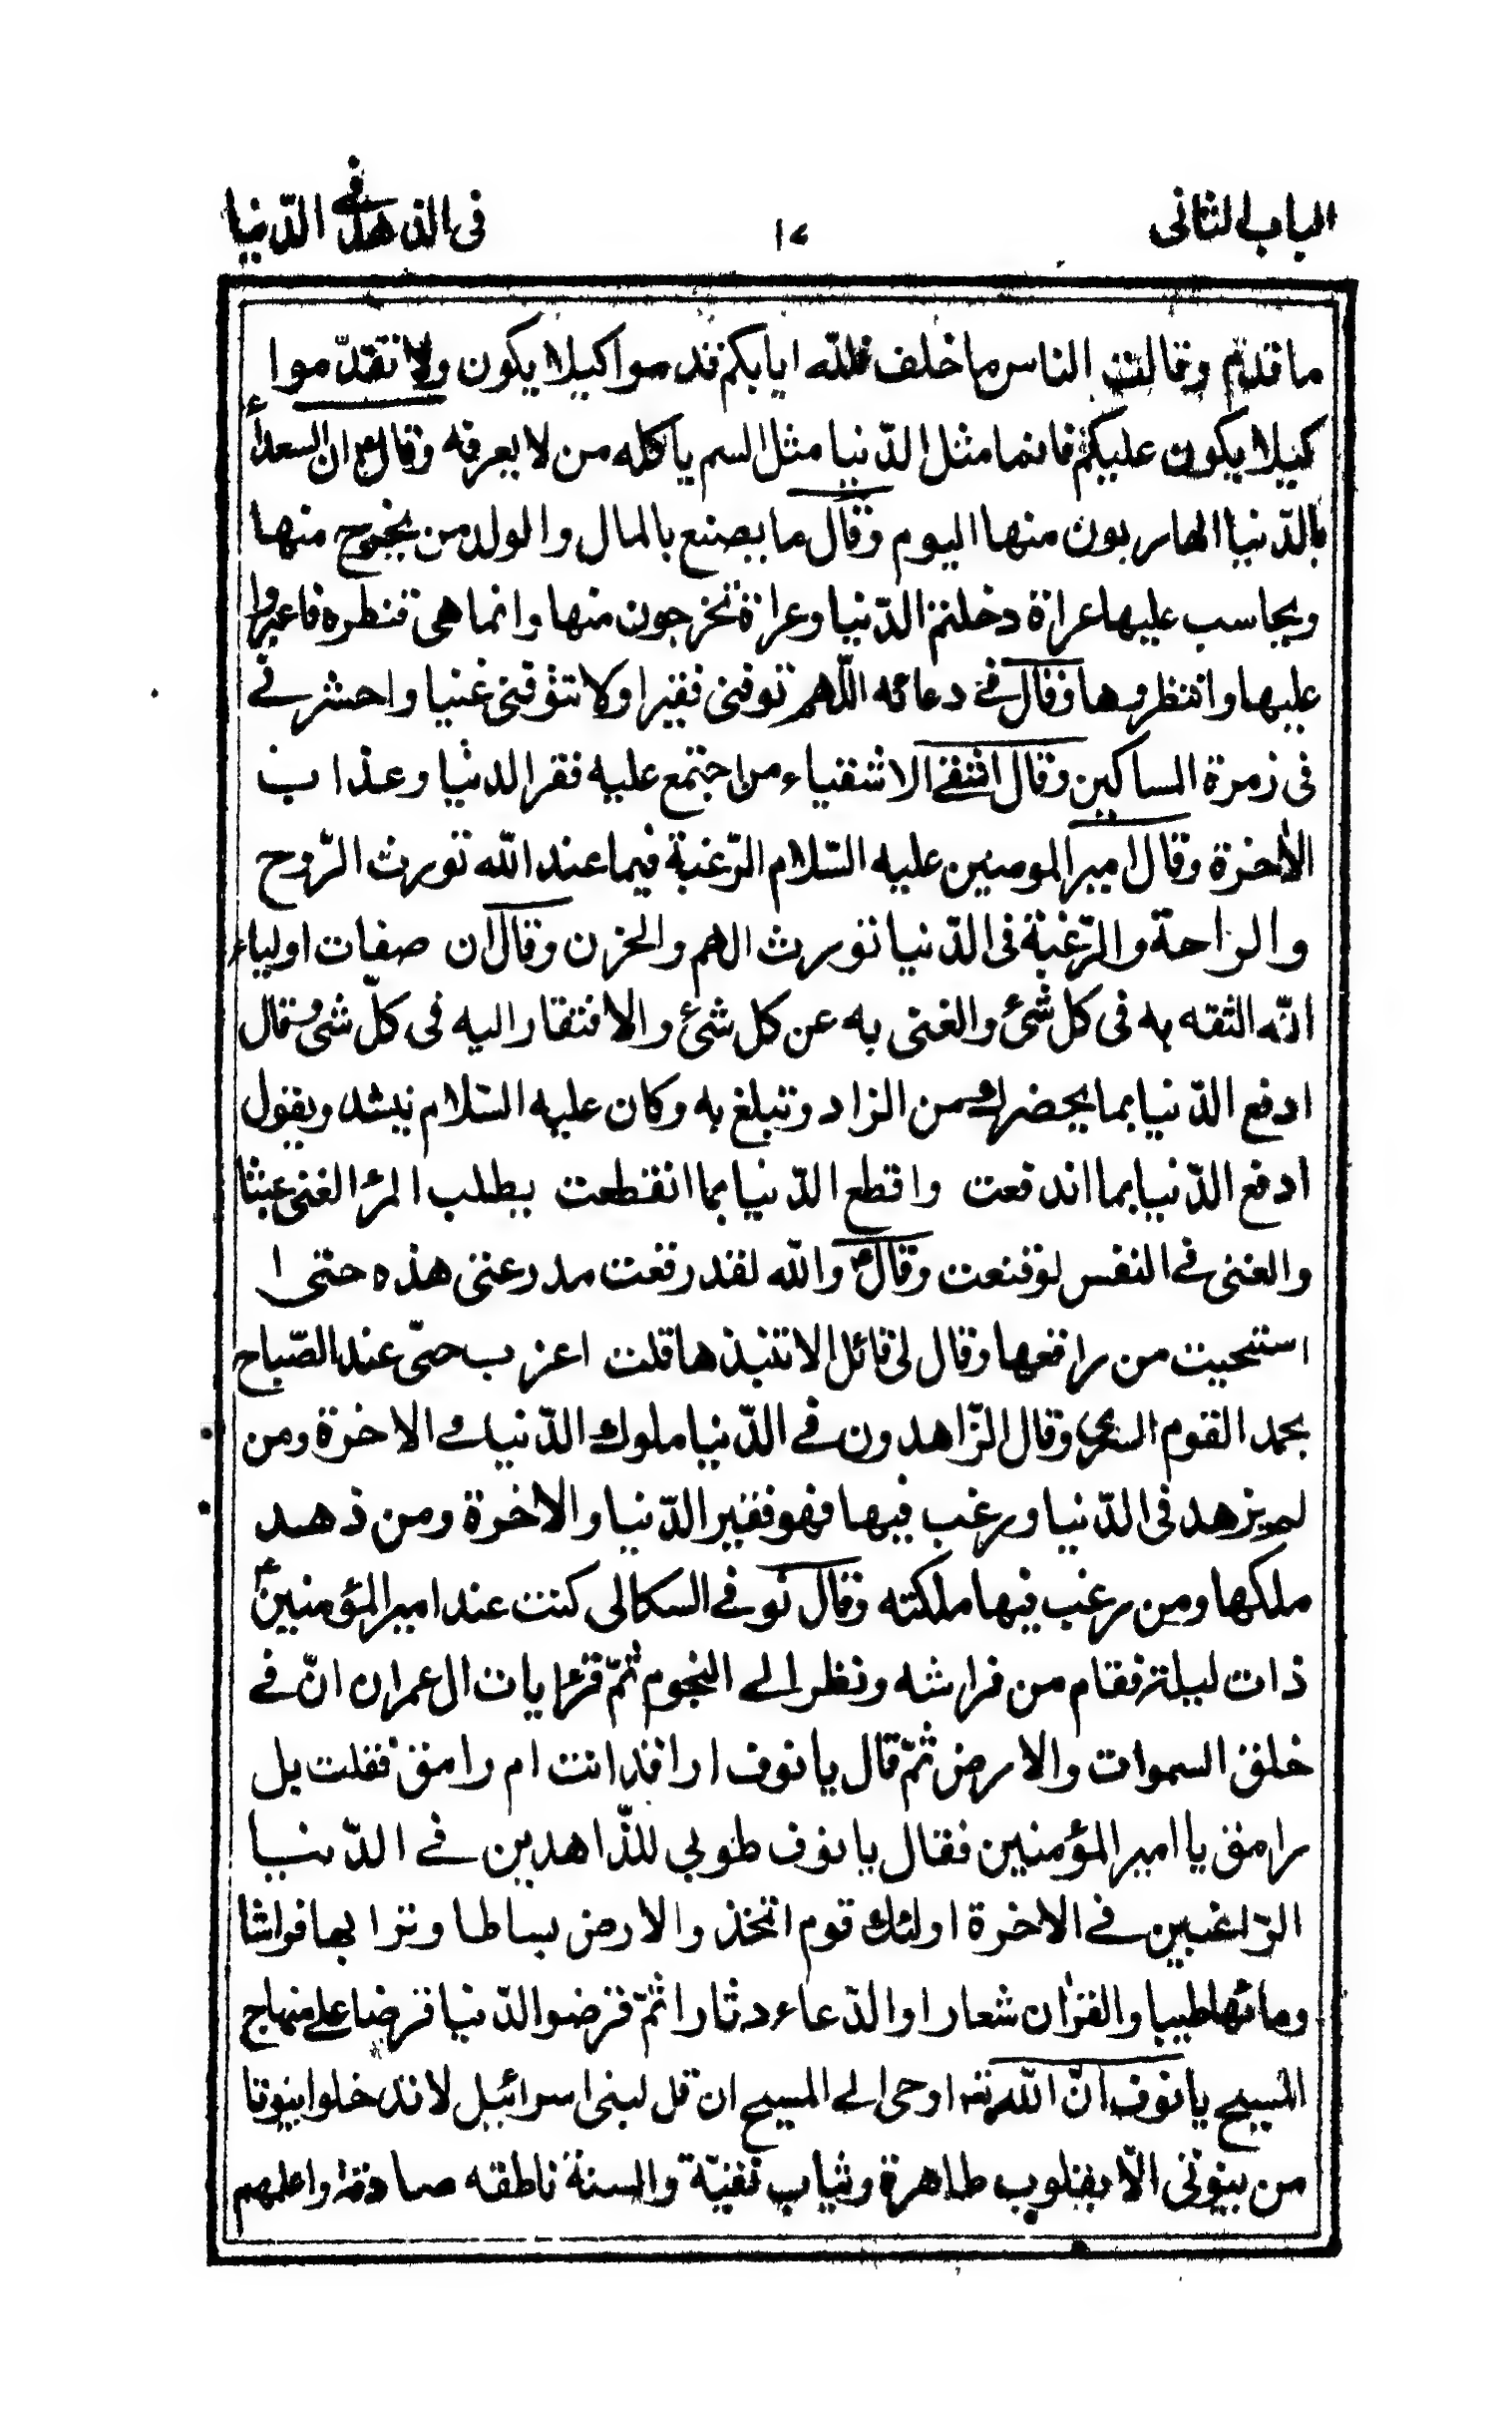 الباب الثانى
١٤
فى الذهد فى الدّنيا
ما قدم وقالت الناس ما خلف فلله اياىكم قدموا كيلا يكون ولا تقدّموا
كيلا يكون عليكم فانما مثل الدّنيا مثل السم ياكله من لا يعرفه وقال ع ان السعداء
بالدّنيا الهاربون منها اليوم وقال ما يصنع بالمال والولد من يخرج منها
ويحاسب عليها عراة دخلتم الدّنيا وعراة تخرجون منها وانما هى قنطره فاعبروا
عليها وانتظروها وقال فى دعائه اللّهم توفنى فقيرا ولا تتوقنى غنيا واحشرنى
فى زمرة المساكين وقال اشقى الاشقياء من اجتمع عليه فقر الدنيا وعذاب
الأخرة وقال امير المومنين عليه السّلام الرّغبة فيما عند الله تورث الرّوح
والراحة والرّغبة فى الدّنيا تورث الهم والحزن وقال ان صفات اولياء
الله الثقه به فى كل شئ والغنى به عن كل شئ والافتقار اليه فى كلّ شئ وقال
ادفع الدّنيا بما يحضرك من الزاد وتبلغ به وكان عليه السّلام ينشد ويقول
ادفع الدّنيا بما اندفعت واقطع الدّنيا بما انقطعت يطلب المرء الغنى عبثا
والغنى فى النفس لو قنعت وقال ع والله لقد رقعت مدرعتى هذه حتى ا
استحييت من راقعها وقال لى قائل الا تنبذها قلت اعزب حتّى عند الصّباح
يحمد القوم السرى وقال الزّاهدون فى الدّنيا ملوك الدّنيا و الاخرة ومن
لم يزهد فى الدّنيا ورغب فيها فهو فقير الدّنيا والاخرة ومن ذهد
ملكها ومن رغب فيها ملكته وقال نوف السكالى كنت عند امير المؤمنين ع
ذات ليلة فقام من فراشه ونظر الى النجوم ثمّ قرء ايات ال عمران انّ فى
خلق السموات والارض ثمّ قال يا نوف اراقد انت ام رامق فقلت بل
رامق يا امير المؤمنين فقال يا نوف طوبى للذّاهدين فى الدّنيا
الرّاغبين فى الاخرة اولئك قوم اتخذ والارض بساطا وترابها فراشا
ومائها طيبا والقرٰان شعارا والدّعاء دثارا ثمّ قرضوا الدّنيا قرضا على منهاج
المسيح يا نوف انّ الله تعه اوحى الى المسيح ان قل لبنى اسرائيل لا تدخلوا بيوتا
من بيوتى الّا بقلوب طاهرة وثياب نقيّة والسنة ناطقه صادقة واعلمهم